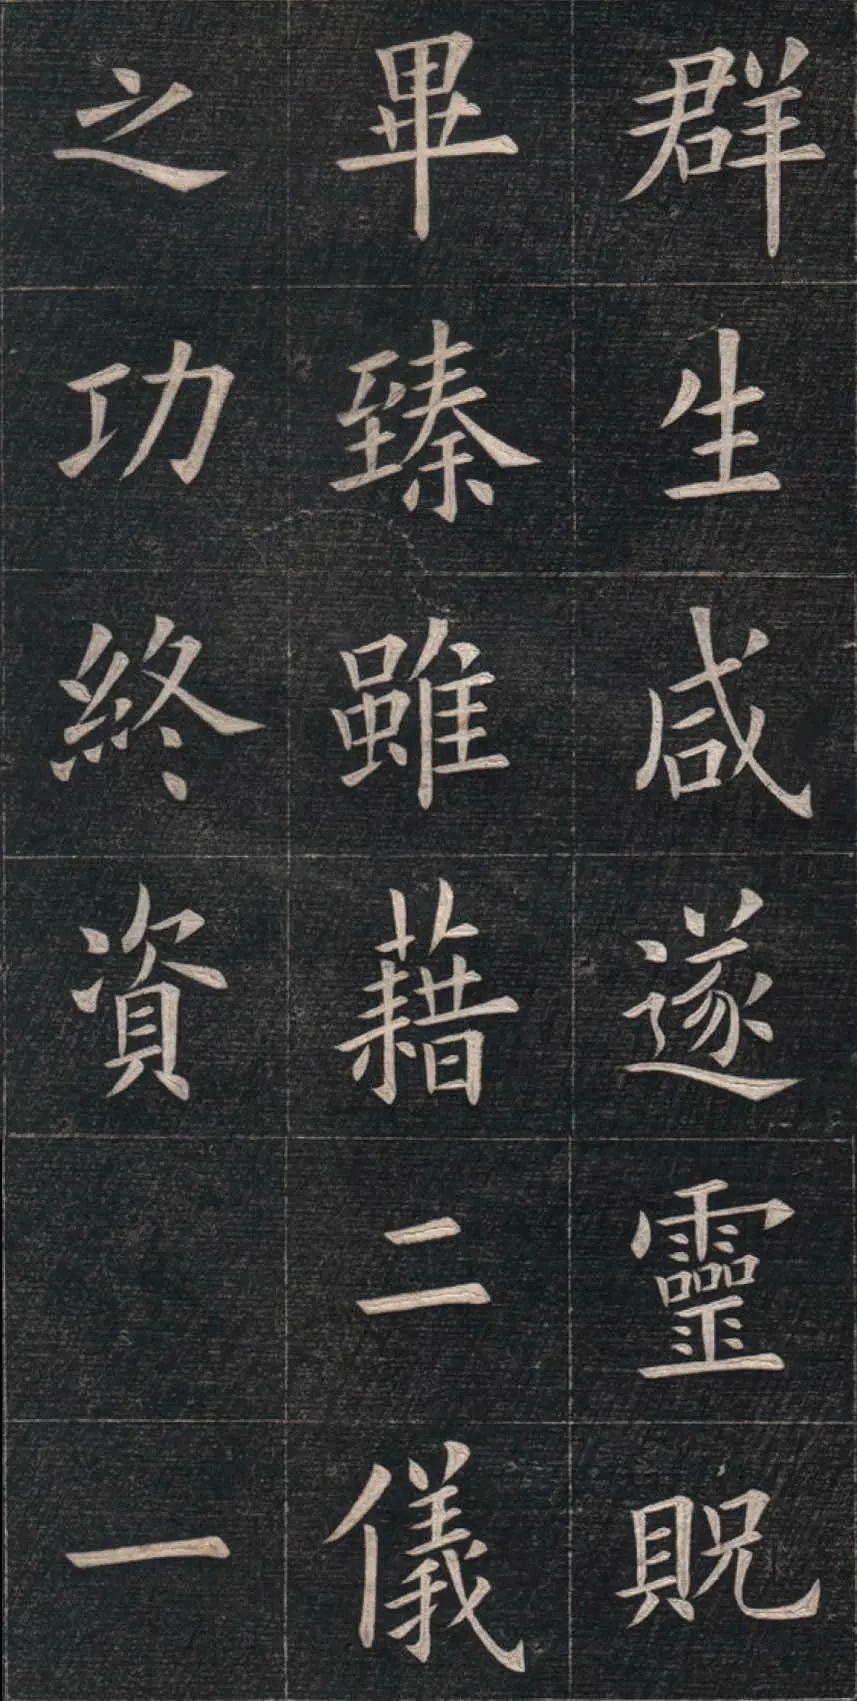 群生咸遂靈貺
畢臻雖藉二儀
之功終資一